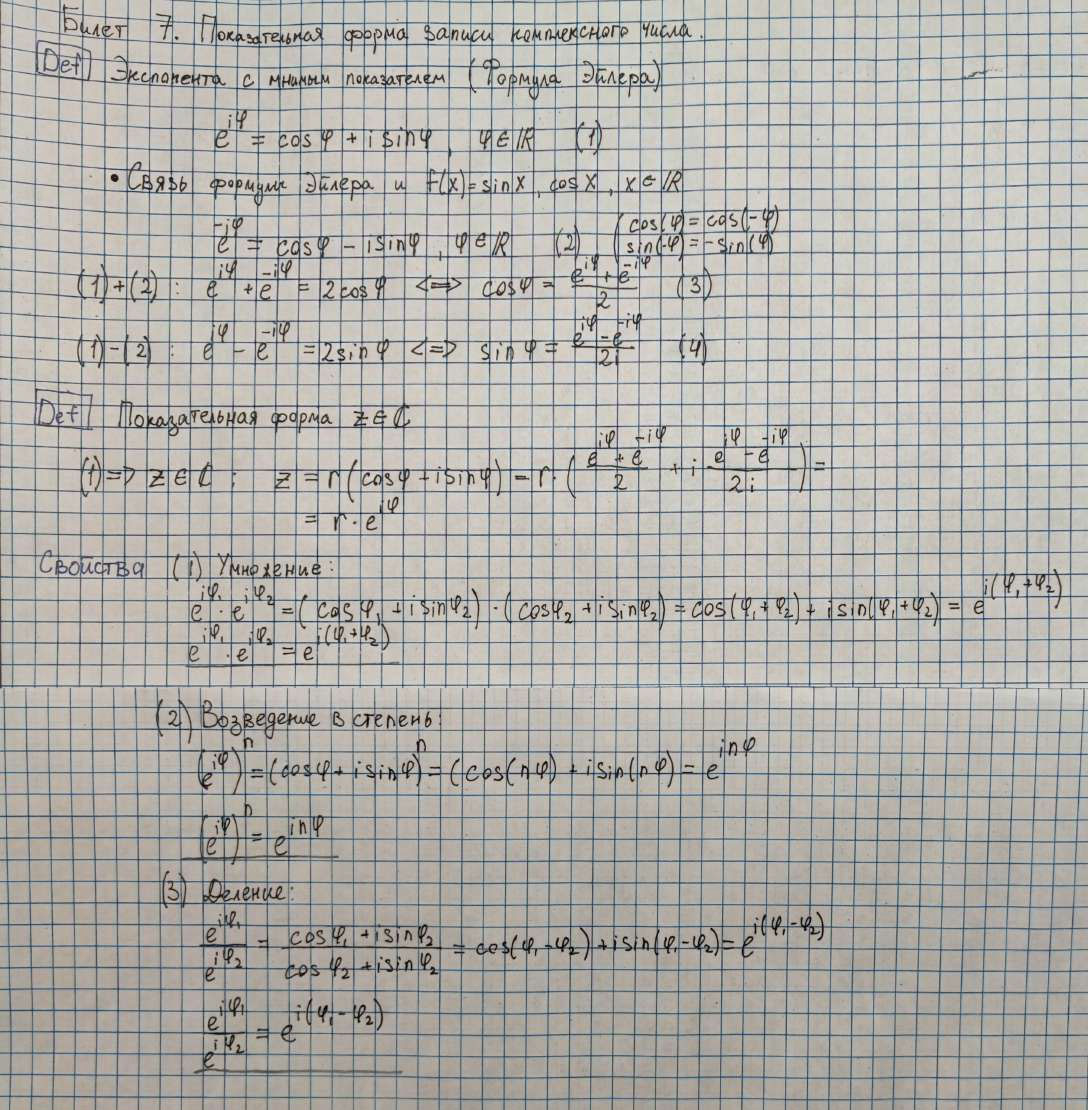 Билет 7. Показательная форма записи комплексного числа.
Def Экспонента с мнимым показателем (Формула Эйлера)
e^{iφ} = cosφ + i sinφ, φ ∈ ℝ (1)
• Связь формулы Эйлера и f(x) = sin x, cos x, x ∈ ℝ
e^{-iφ} = cosφ - i sinφ, φ ∈ ℝ (2) ( cos(φ) = cos(-φ)
sin(-φ) = -sin(φ)
(1)+(2): e^{iφ} + e^{-iφ} = 2cosφ <=> cosφ = \frac{e^{iφ} + e^{-iφ}}{2} (3)
(1)-(2): e^{iφ} - e^{-iφ} = 2sinφ <=> sinφ = \frac{e^{iφ} - e^{-iφ}}{2i} (4)
Def Показательная форма z ∈ ℂ
(1) => z ∈ ℂ: z = r(cosφ + i sinφ) = r·(\frac{e^{iφ} + e^{-iφ}}{2} + i \frac{e^{iφ} - e^{-iφ}}{2i}) =
= r·e^{iφ}
Свойства (1) Умножение:
e^{iφ_1} · e^{iφ_2} = (cosφ_1 + i sinφ_2)·(cosφ_2 + i sinφ_2) = cos(φ_1+φ_2) + i sin(φ_1+φ_2) = e^{i(φ_1+φ_2)}
e^{iφ_1} · e^{iφ_2} = e^{i(φ_1+φ_2)}
(2) Возведение в степень:
(e^{iφ})^n = (cosφ + i sinφ)^n = (cos(nφ) + i sin(nφ) = e^{inφ}
(e^{iφ})^n = e^{inφ}
(3) Деление:
\frac{e^{iφ_1}}{e^{iφ_2}} = \frac{cosφ_1 + i sinφ_2}{cosφ_2 + i sinφ_2} = cos(φ_1-φ_2) + i sin(φ_1-φ_2) = e^{i(φ_1-φ_2)}
\frac{e^{iφ_1}}{e^{iφ_2}} = e^{i(φ_1-φ_2)}